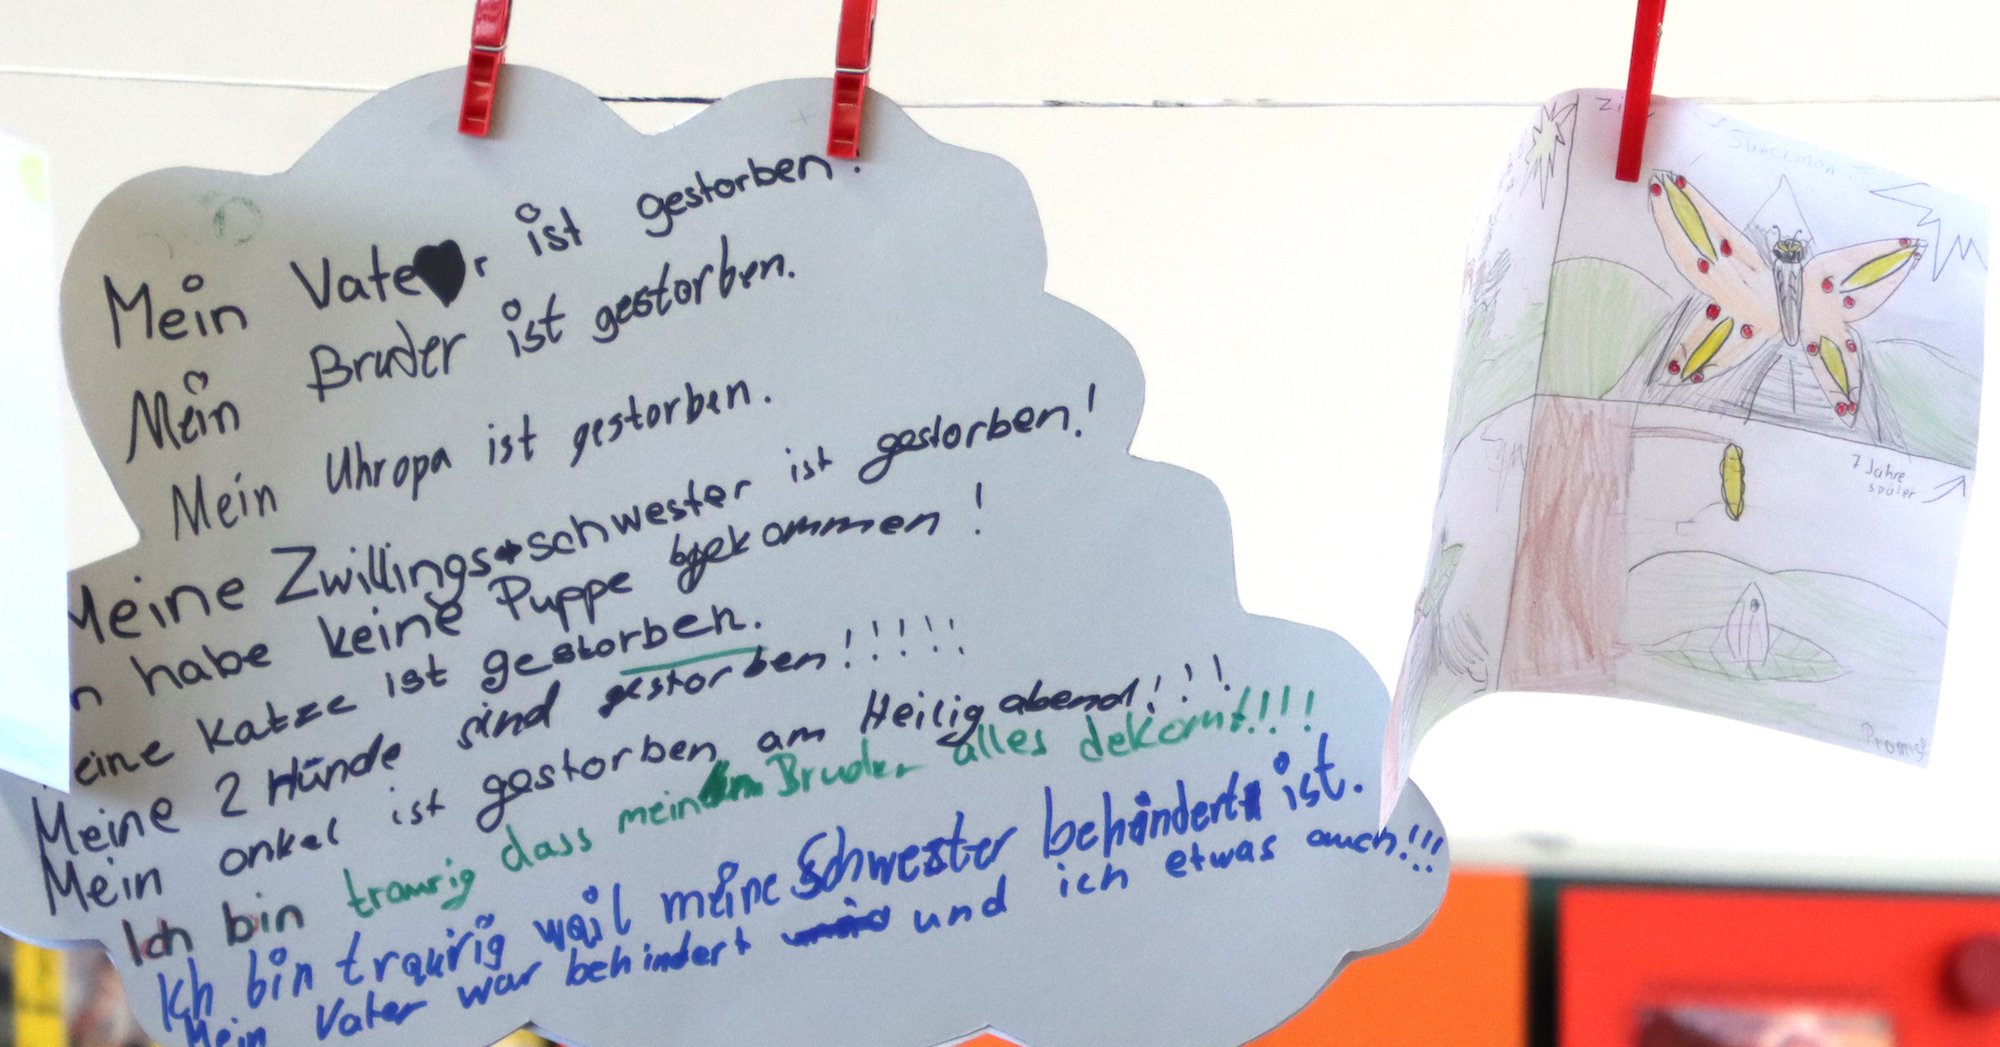 Mein Vater ist gestorben.
Mein Bruder ist gestorben.
Mein Uhropa ist gestorben.
Meine Zwillingsschwester ist gestorben!
habe keine Puppe bekommen!
eine Katze ist gestorben.
Meine 2 Hünde sind gestorben!!!!!!
Mein onkel ist gestorben am Heiligabend!!!
Ich bin traurig dass mein Bruder alles dekomt!!!
Ich bin traurig weil meine Schwester behindert ist.
Mein Vater war behindert und ich etwas auch!!!
Superman
7 Jahre
später